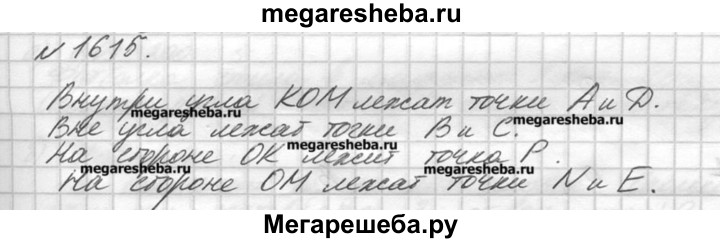 megaresheba.ru
N 1615.
Внутри угла КОМ лежат точки А и D.
megaresheba.ru megaresheba.ru
Вне угла лежат точки В и С.
megaresheba.ru megaresheba.ru
На стороне ОК лежит точка Р.
На стороне ОМ лежат точки N и Е.
megaresheba.ru megaresheba.ru
Мегарешеба.ру